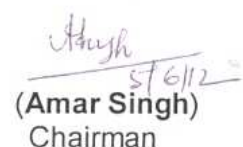 5/6/12
(Amar Singh)
Chairman